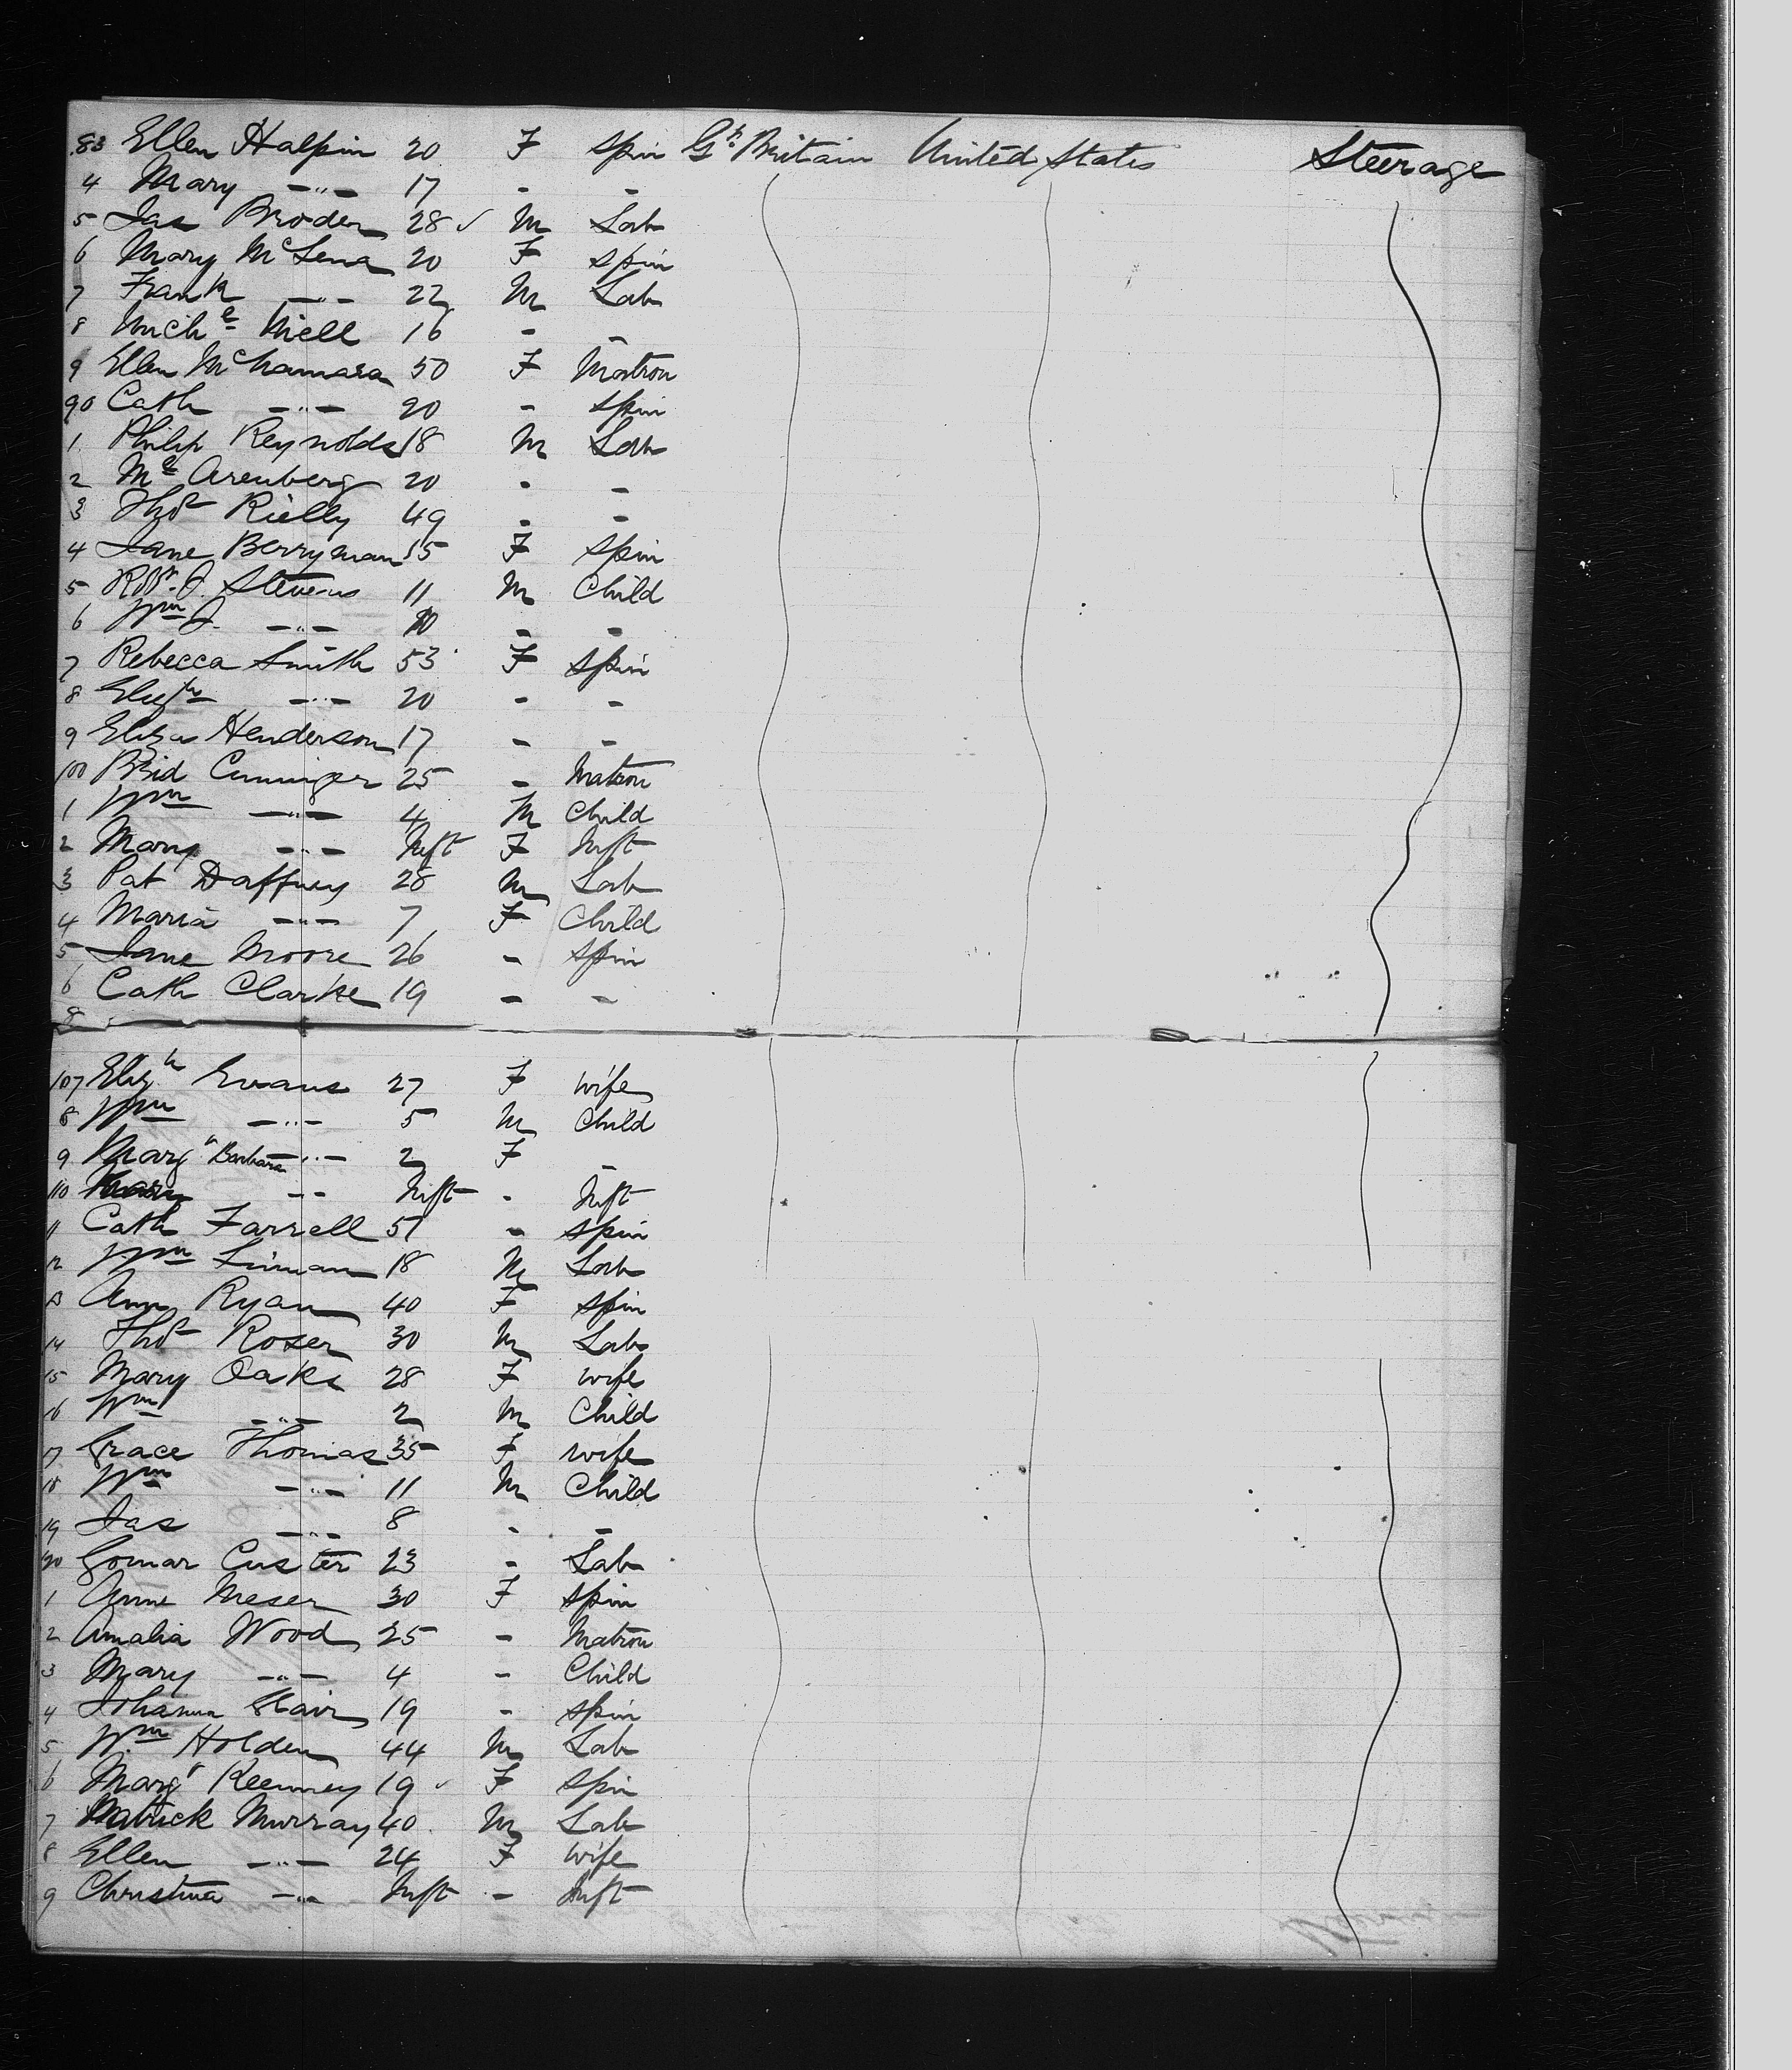 83 Ellen Halpin 20 F Spin Gt Britain United States Steerage
4 Mary -"- 17 - -
5 Jas Broder 28 ✓ M Lab
6 Mary McLena 20 F Spin
7 Frank -"- 22 M Lab
8 Michl Niell 16 - -
9 Ellen McNamara 50 F Matron
90 Cath -"- 20 - Spin
1 Philip Reynolds 18 M Lab
2 Arenberg 20 - -
3 Thos Rielly 49 - -
4 Jane Berryman 35 F Spin
5 Robt J. Stevens 11 M Child
6 Wm J. -"- - -
7 Rebecca Smith 53 F Spin
8 Elizth -"- 20 - -
9 Eliza Henderson 17 - -
100 Brid 25 - Matron
1 Wm -"- 4 M Child
2 Mary -"- Inft F Inft
3 Pat Daffney 28 M Lab
4 Maria -"- 7 F Child
5 Jane Moore 26 - Spin
6 Cath Clarke 19 - -
8
107 Elizth Evans 27 F wife
8 Wm -"- 5 M Child
9 Margt Barbara -"- 2 F -
110 Mary -"- Inft - Inft
11 Cath Farrell 51 - Spin
12 Wm Linnan 18 M Lab
13 Ann Ryan 40 F Spin
14 Thos Roser 30 M Lab
15 Mary Oake 28 F wife
16 Wm -"- 2 M Child
17 Grace Thomas 35 F wife
18 Wm -"- 11 M Child
19 Jas -"- 8 - -
120 Gomar Custer 23 - Lab
1 Anne Meser 30 F Spin
2 Amalia Wood 25 - Matron
3 Mary -"- 4 - Child
4 Johanna 19 - Spin
5 Wm Holden 44 M Lab
6 Margt Keenney 19 F Spin
7 Patrick Murray 40 M Lab
8 Ellen -"- 24 F Wife
9 Christina -"- Inft - Inft